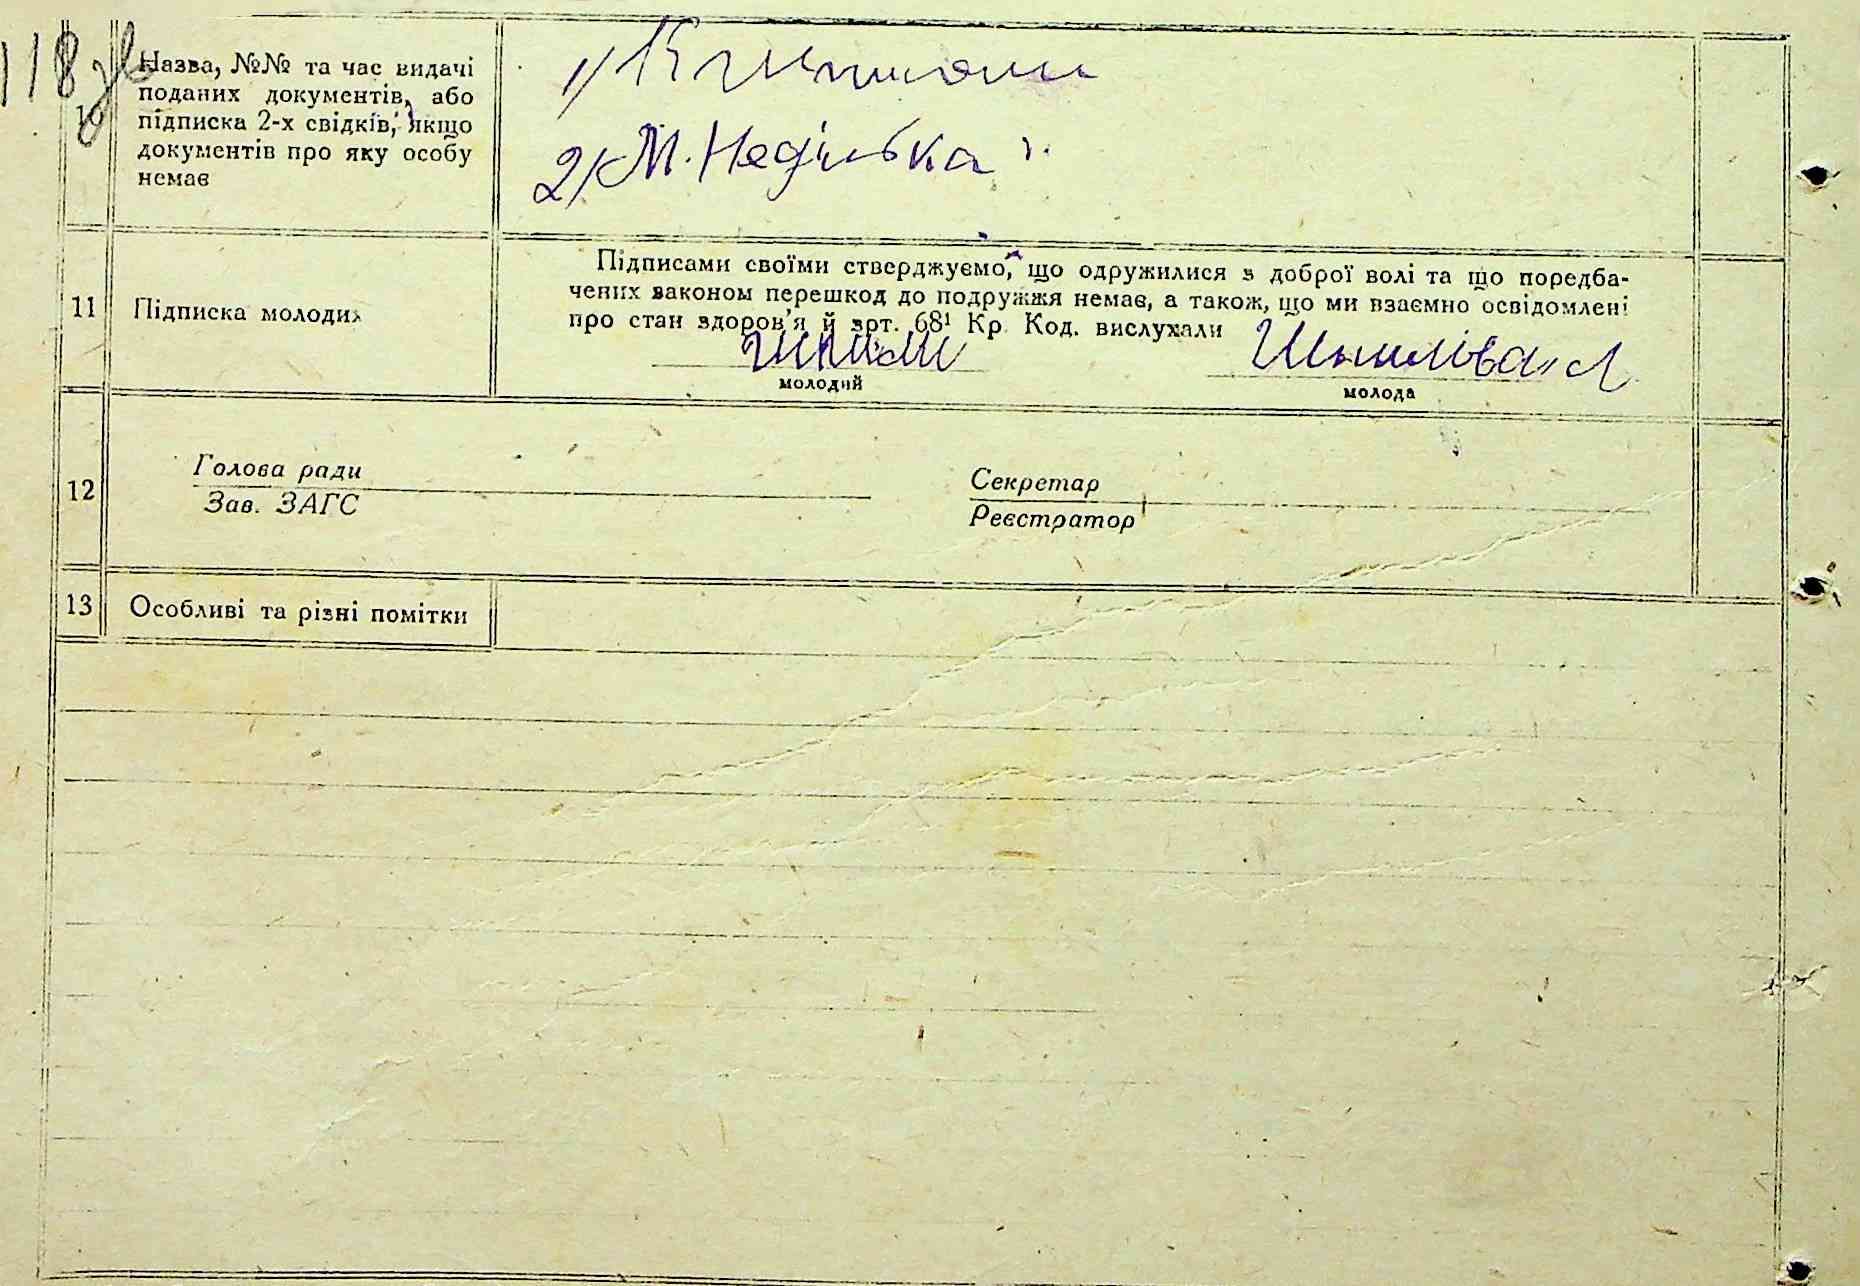 118 зв
10
Назва, №№ та час видачі
поданих документів, або
підписка 2-х свідків, якщо
документів про яку особу
немає
1)
2) М. Неділька
11
Підписка молодих
Підписами своїми стверджуємо, що одружилися з доброї волі та що поредба-
чених законом перешкод до подружжя немає, а також, що ми взаємно освідомлені
про стан здоров'я й арт. 68¹ Кр. Код. вислухали
молодий
молода
12
Голова ради
Зав. ЗАГС
Секретар
Реєстратор
13
Особливі та різні помітки